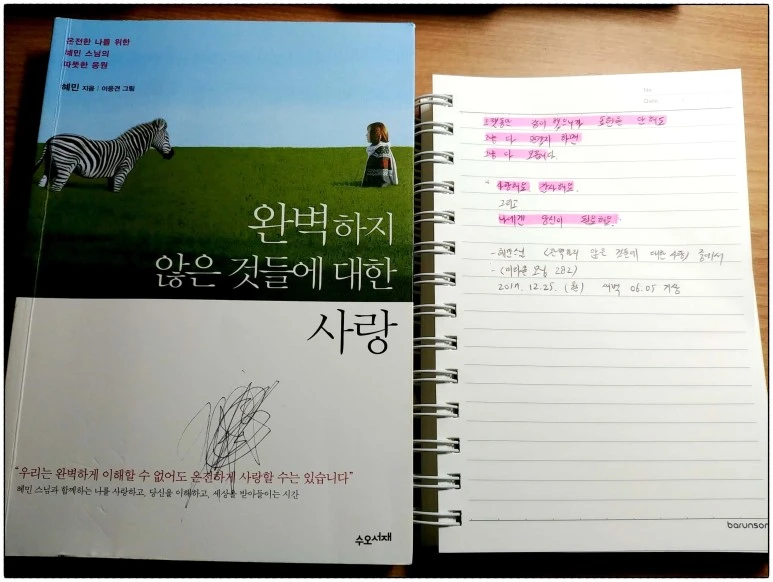 온전한 나를 위한
혜민 스님의
따뜻한 응원
혜민 지음 | 이응견 그림
완벽하지
않은 것들에 대한
사랑
"우리는 완벽하게 이해할 수 없어도 온전하게 사랑할 수는 있습니다"
혜민 스님과 함께하는 나를 사랑하고, 당신을 이해하고, 세상을 받아들이는 시간
수오서재
No
Date
오랫동안 표현을 안 해도
다 안다지 하면
다 모릅니다.
"사랑해요 감사해요.
그리고
나에겐 당신이 필요해요.
- 혜민스님 <완벽하지 않은 것들에 대한 사랑> 중에서
- (아리운 모닝 282)
2019. 12. 25. (水) 새벽 06:05 기상
barunson